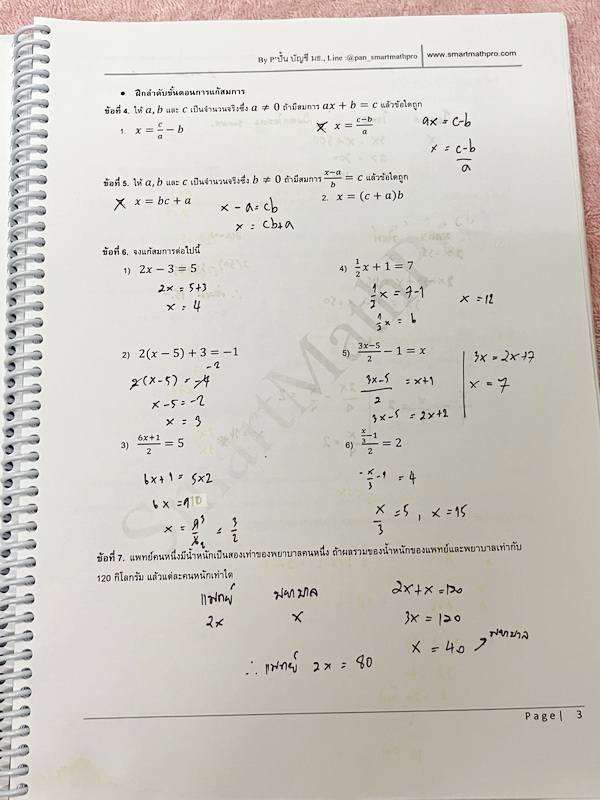 By P'ปั้น บัญชี มธ., Line :@pan_smartmathpro | www.smartmathpro.com
• ฝึกลำดับขั้นตอนการแก้สมการ
ข้อที่ 4. ให้ a, b และ c เป็นจำนวนจริงซึ่ง a ≠ 0 ถ้ามีสมการ ax + b = c แล้วข้อใดถูก
1. x = c/a − b
x = (c−b)/a
ax = c-b
x = (c-b)/a
ข้อที่ 5. ให้ a, b และ c เป็นจำนวนจริงซึ่ง b ≠ 0 ถ้ามีสมการ (x−a)/b = c แล้วข้อใดถูก
x = bc + a
2. x = (c + a)b
x - a = cb
x = cb+a
ข้อที่ 6. จงแก้สมการต่อไปนี้
1) 2x − 3 = 5
2x = 5+3
x = 4
4) 1/2 x + 1 = 7
1/2 x = 7-1
x = 12
x = 6
2) 2(x − 5) + 3 = −1
2(x-5) = -4 -2
x-5 = -2
x = 3
5) (3x−5)/2 − 1 = x
(3x-5)/2 = x+1
3x-5 = 2x+2
3x = 2x+7
x = 7
3) (6x+1)/2 = 5
6x+1 = 5x2
x = 3/2
6) (x/3 −1)/2 = 2
x/3 -1 = 4
x/3 = 5 , x = 15
ข้อที่ 7. แพทย์คนหนึ่งมีน้ำหนักเป็นสองเท่าของพยาบาลคนหนึ่ง ถ้าผลรวมของน้ำหนักของแพทย์และพยาบาลเท่ากับ
120 กิโลกรัม แล้วแต่ละคนหนักเท่าใด
แพทย์ พยาบาล
2x x
2x+x = 120
3x = 120
x = 40 พยาบาล
∴ แพทย์ 2x = 80
SmartMathPro
Page | 3